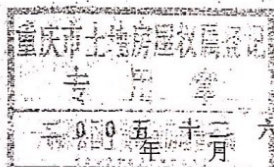 重庆市土地房屋权属登记
专用章
二00五年十二月六